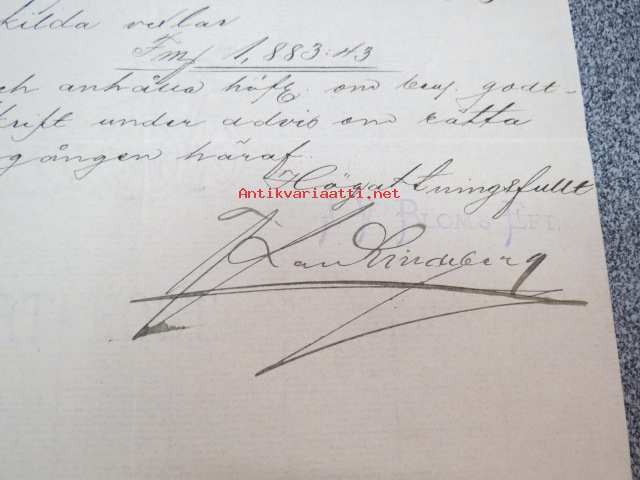 kilda vexlar
Fmf 1,883:43
ch anhålla höfl. om ben. godt-
skrift under advis om rätta
gången häraf.
Högaktningsfullt
Antikvariaatti.net
BLOMS EFT.
Lindeberg